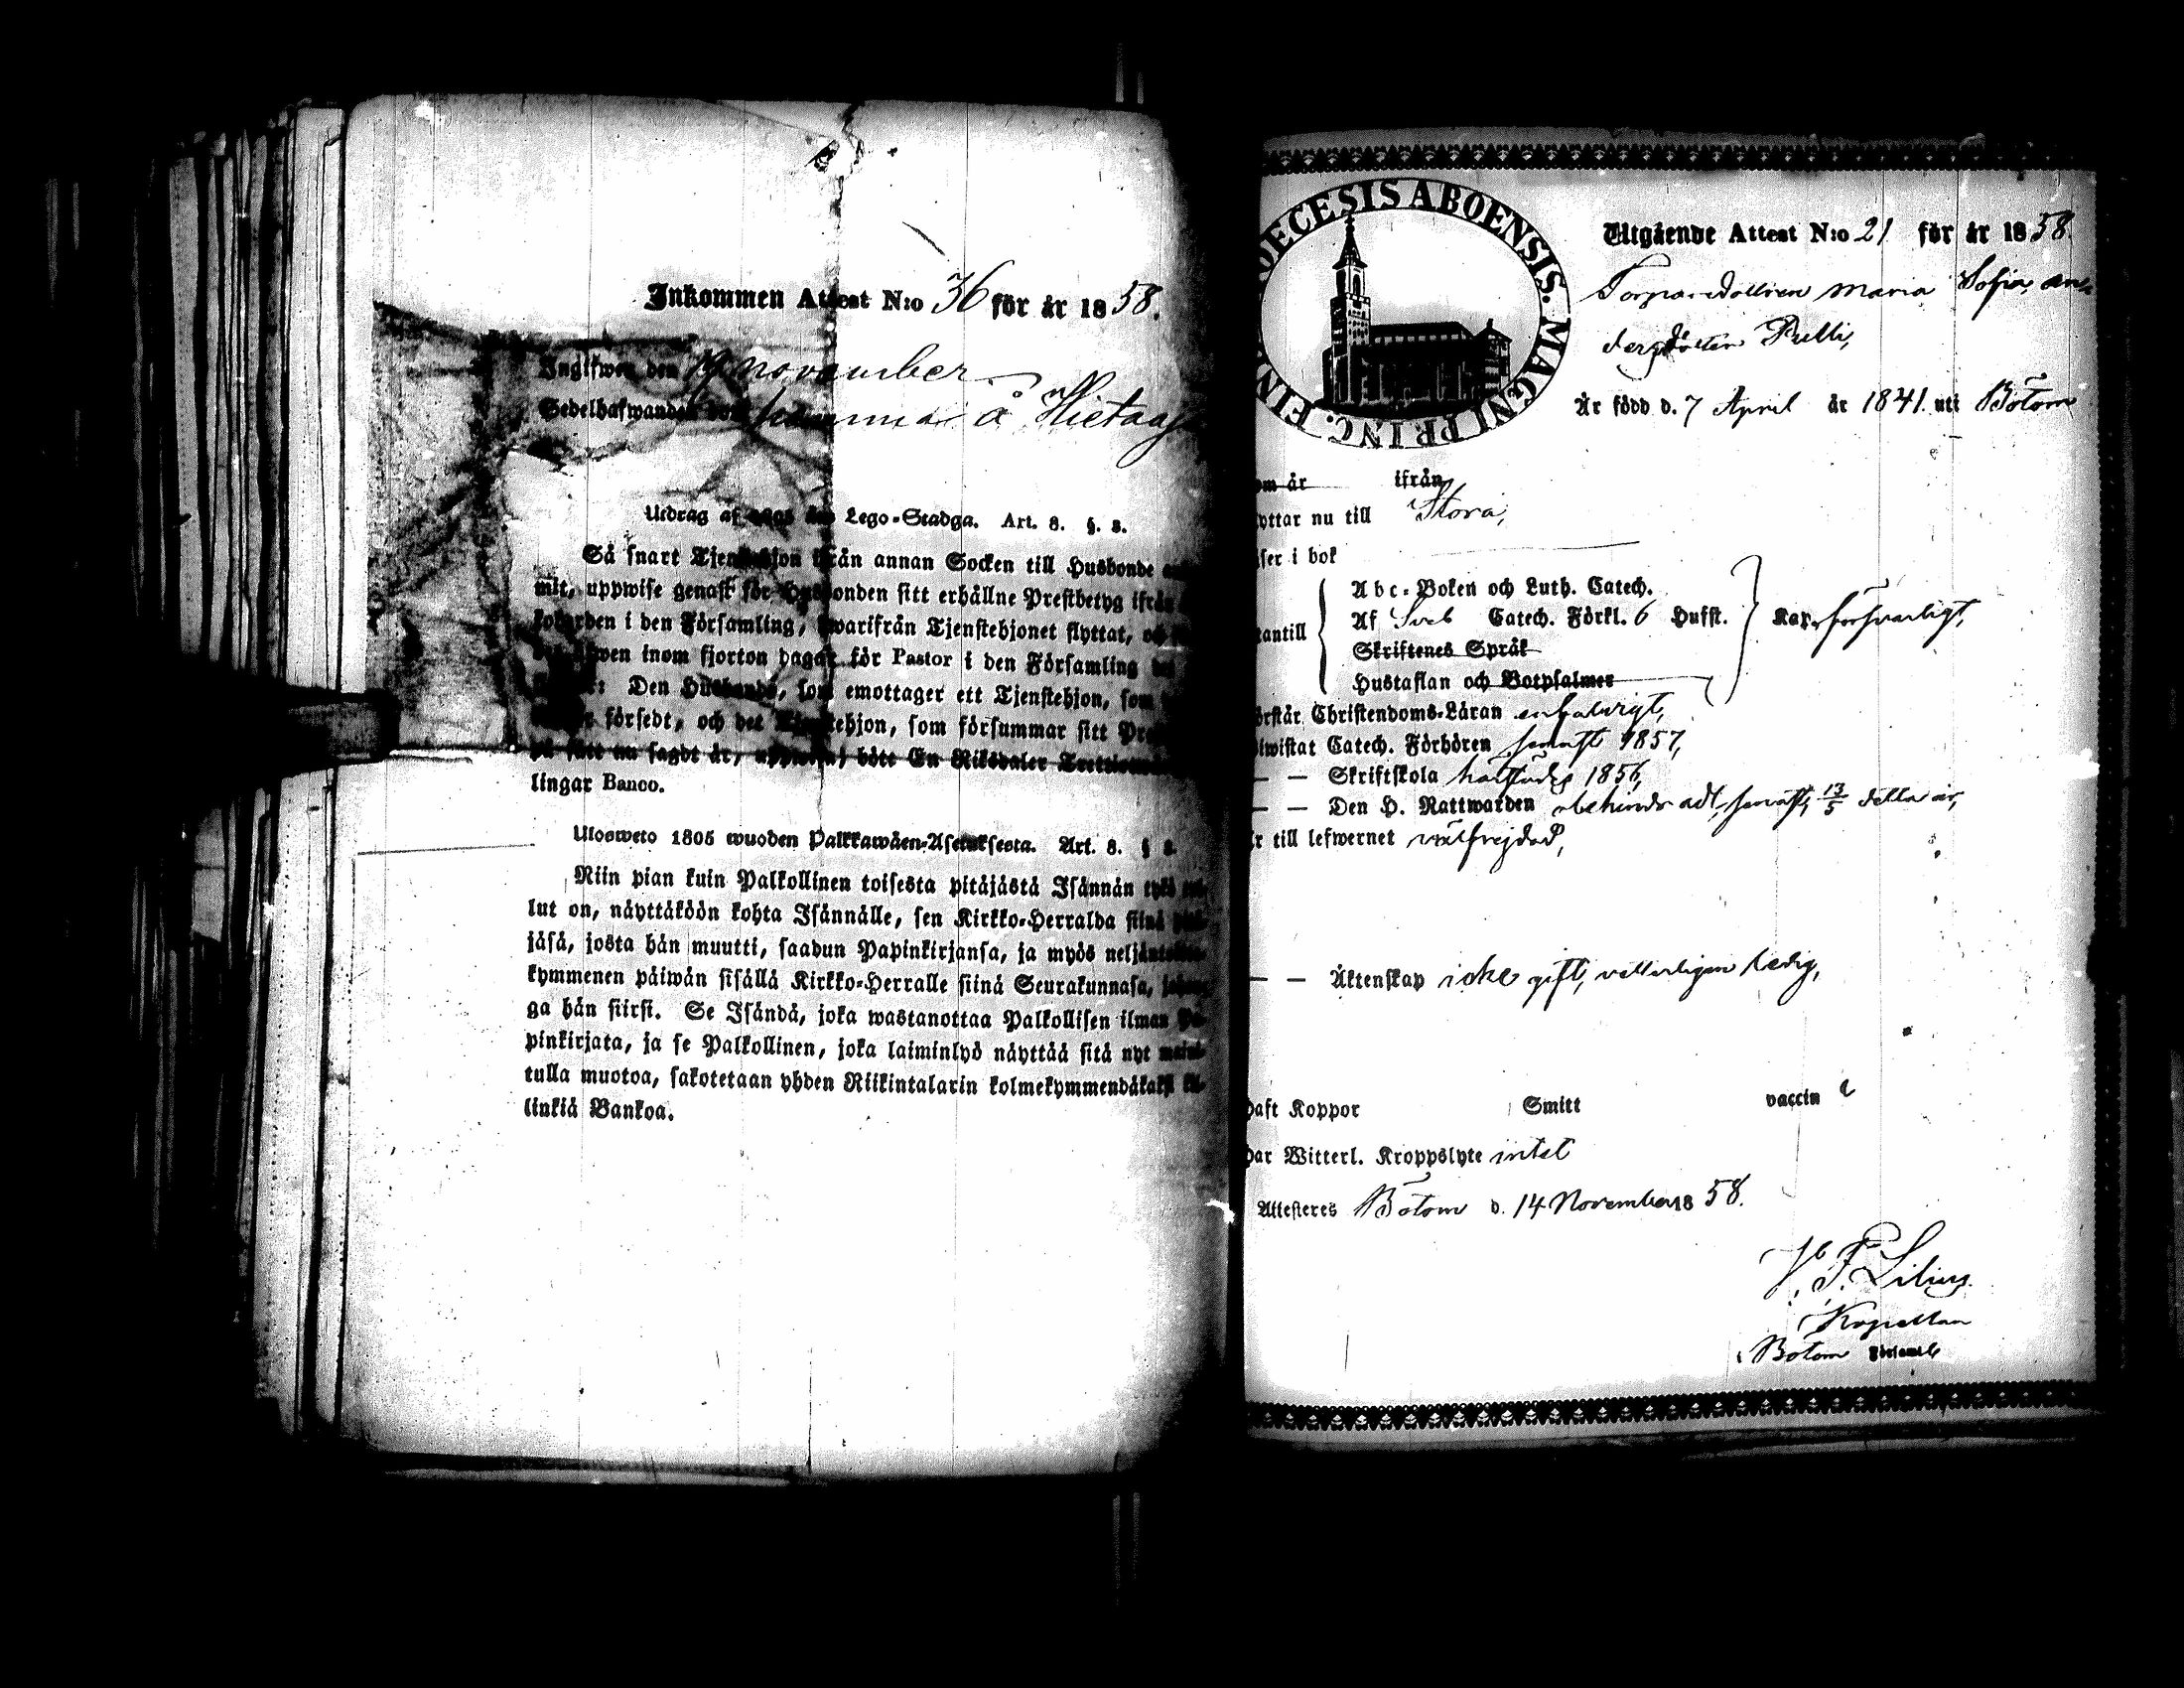 Inkommen Attest N:o 36 för år 1858.
Ingifwen den 19 november
Sedelhafwanden å Hietaoja
Utdrag af 1805 års Lego-Stadga. Art. 8. §. 8.
Så snart Tjenstehjon ifrån annan Socken till Husbonde
mit, uppwise genast för Husbonden sitt erhållne Prestbetyg ifrån
i den Församling, hwarifrån Tjenstehjonet flyttat, och
inom fjorton dagar för Pastor i den Församling
Den Husbonde, som emottager ett Tjenstehjon, som
försedt, och det Tjenstehjon, som försummar sitt
på sätt nu sagdt är, uppwisa, böte En Riksdaler
lingar Banco.
Ulosweto 1805 wuoden Palkkawäen-Asetuksesta. Art. 8. § 8.
Niin pian kuin Palkollinen toisesta pitäjästä Isännän tykö
lut on, näyttäköön kohta Isännälle, sen Kirkko-Herralda siinä
jäsä, josta hän muutti, saadun Papinkirjansa, ja myös
kymmenen päiwän sisällä Kirkko-Herralle siinä Seurakunnasa,
ga hän siirsi. Se Isändä, joka wastanottaa Palkollisen ilman Pa-
pinkirjata, ja se Palkollinen, joka laiminlyö näyttää sitä nyt
tulla muotoa, sakotetaan yhden Riikintalarin kolmekymmendäkaksi
linkiä Bankoa.
DIOECESIS ABOENSIS. MAGNI PRINC. FIN
Utgående Attest N:o 21 för år 1858.
Torparedottren Maria Sofia An-
dersdotter
Är född d. 7 April år 1841 uti Bötom
om år ifrån
yttar nu till Storå,
ser i bok
Abc-Boken och Luth. Catech.
antill Af Sveb Catech. Förkl. 6 Hufst. Kap. försvarligt,
Skriftenes Språk
Hustaflan och Botpsalmer
örstår Christendoms-Läran enfaldigt,
lwistat Catech. Förhören senast 1857,
— — Skriftskola 1856,
— — Den H. Nattwarden obehindrad, senast 13/5 detta år,
r till lefwernet välfrejdad,
— — Äktenskap icke gift, vetterligen ledig,
haft Koppor Smitt vaccin
har Witterl. Kroppslyte intet
Attesteres Bötom d. 14 November 1858.
Lilius.
Kapellan
Bötom Församl